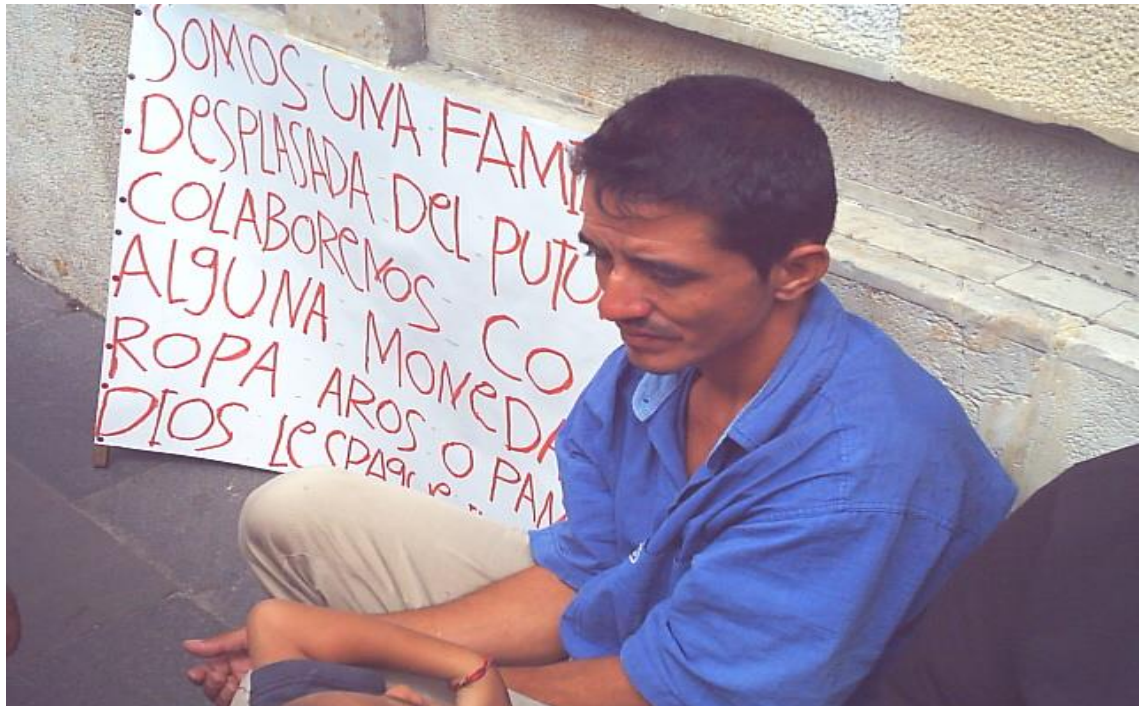 SOMOS UNA FAMI
DESPLASADA DEL PUTU
COLABOREMOS CO
ALGUNA MONEDA
ROPA AROS O PAN
DIOS LES PAGUE